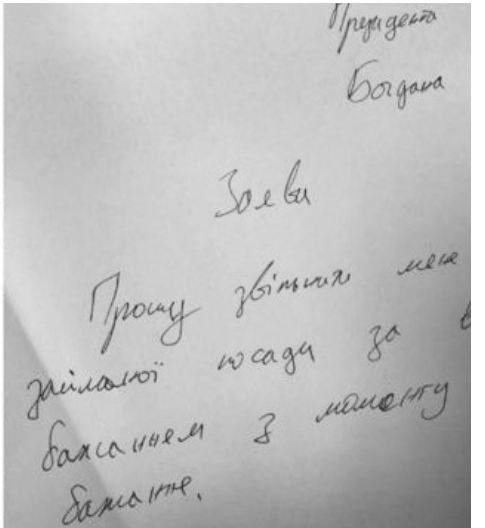 Президента
Богдана
Заява
Прошу звільнити мене
займаної посади за в
бажанням з моменту
бажання.